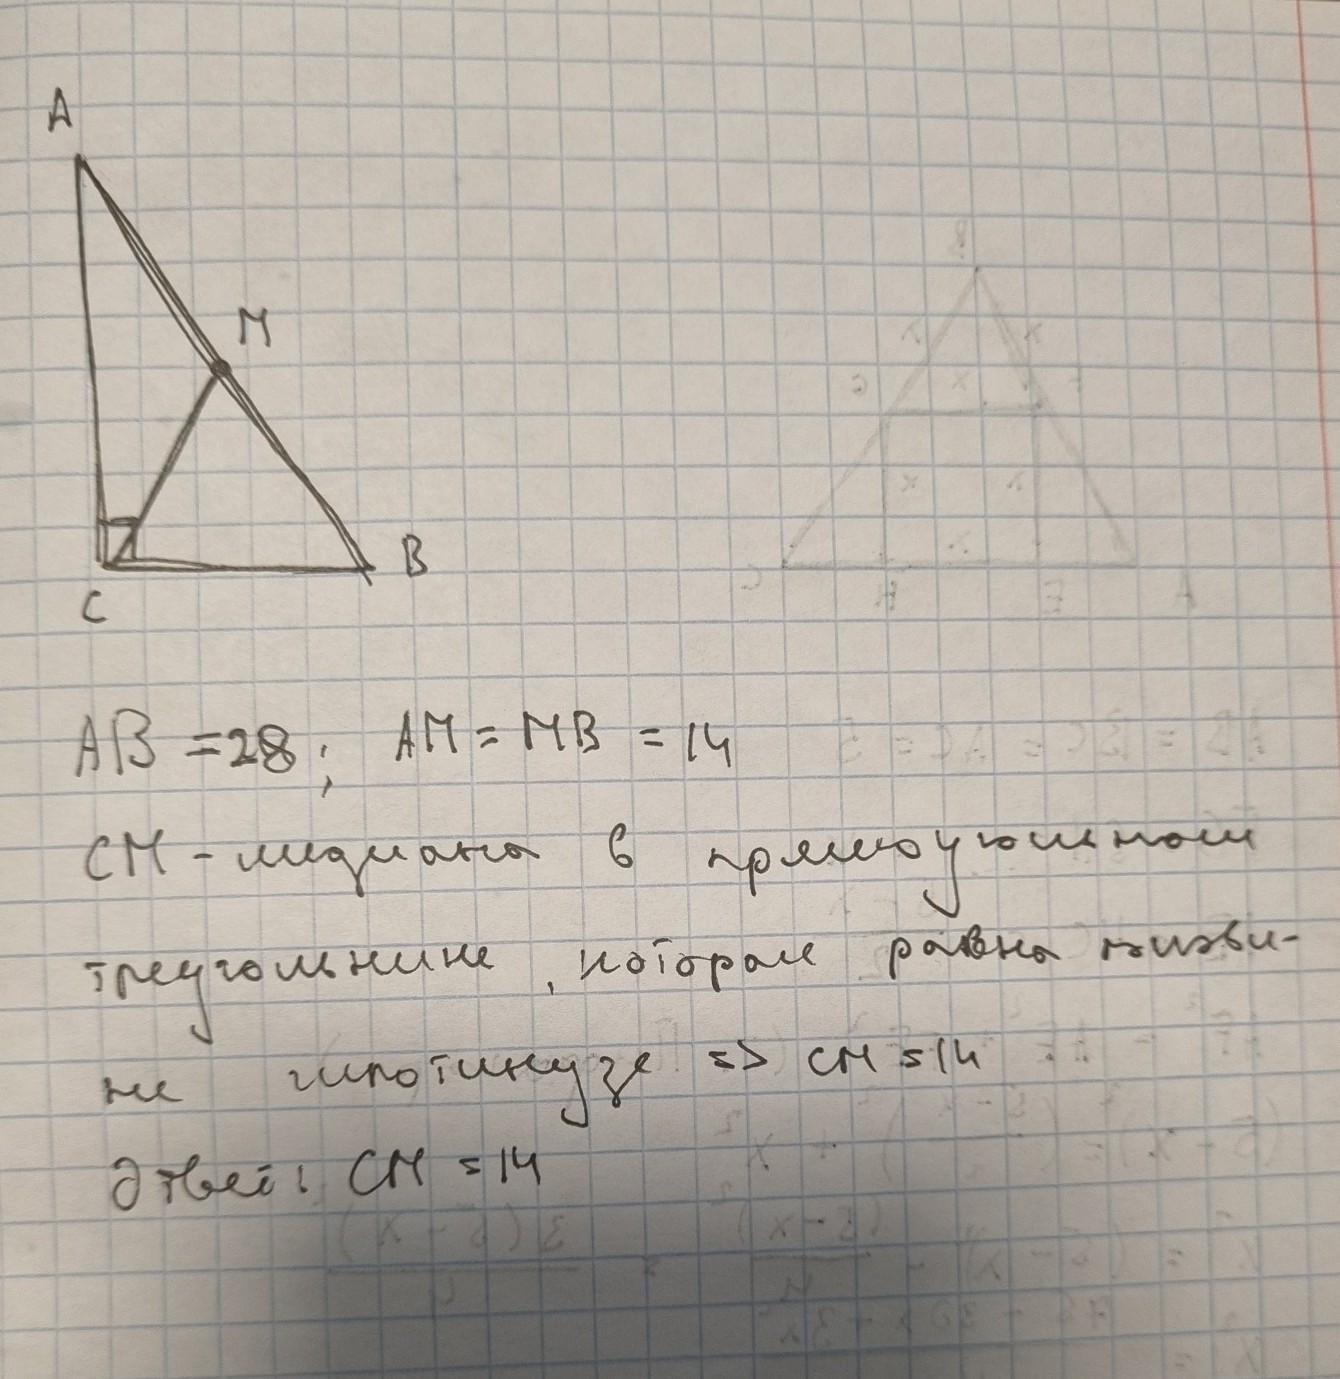 A
M
B
C
AB = 28; AM = MB = 14
CM - медиана в прямоугольном
треугольнике, которая равна
гипотенузе => CM = 14
Ответ: CM = 14